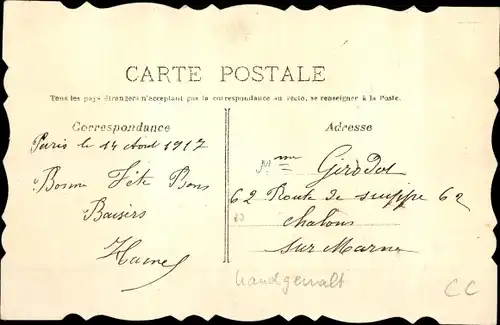 CARTE POSTALE
Tous les pays étrangers n'acceptent pas la correspondance au recto, se renseigner à la Poste.
Correspondance
Paris le 14 Aout 1917
Bonne Fête Bons
Baisers
Adresse
Mme Girodot
62 Route de suippe 62
chalons
sur Marne
handgemalt
CC